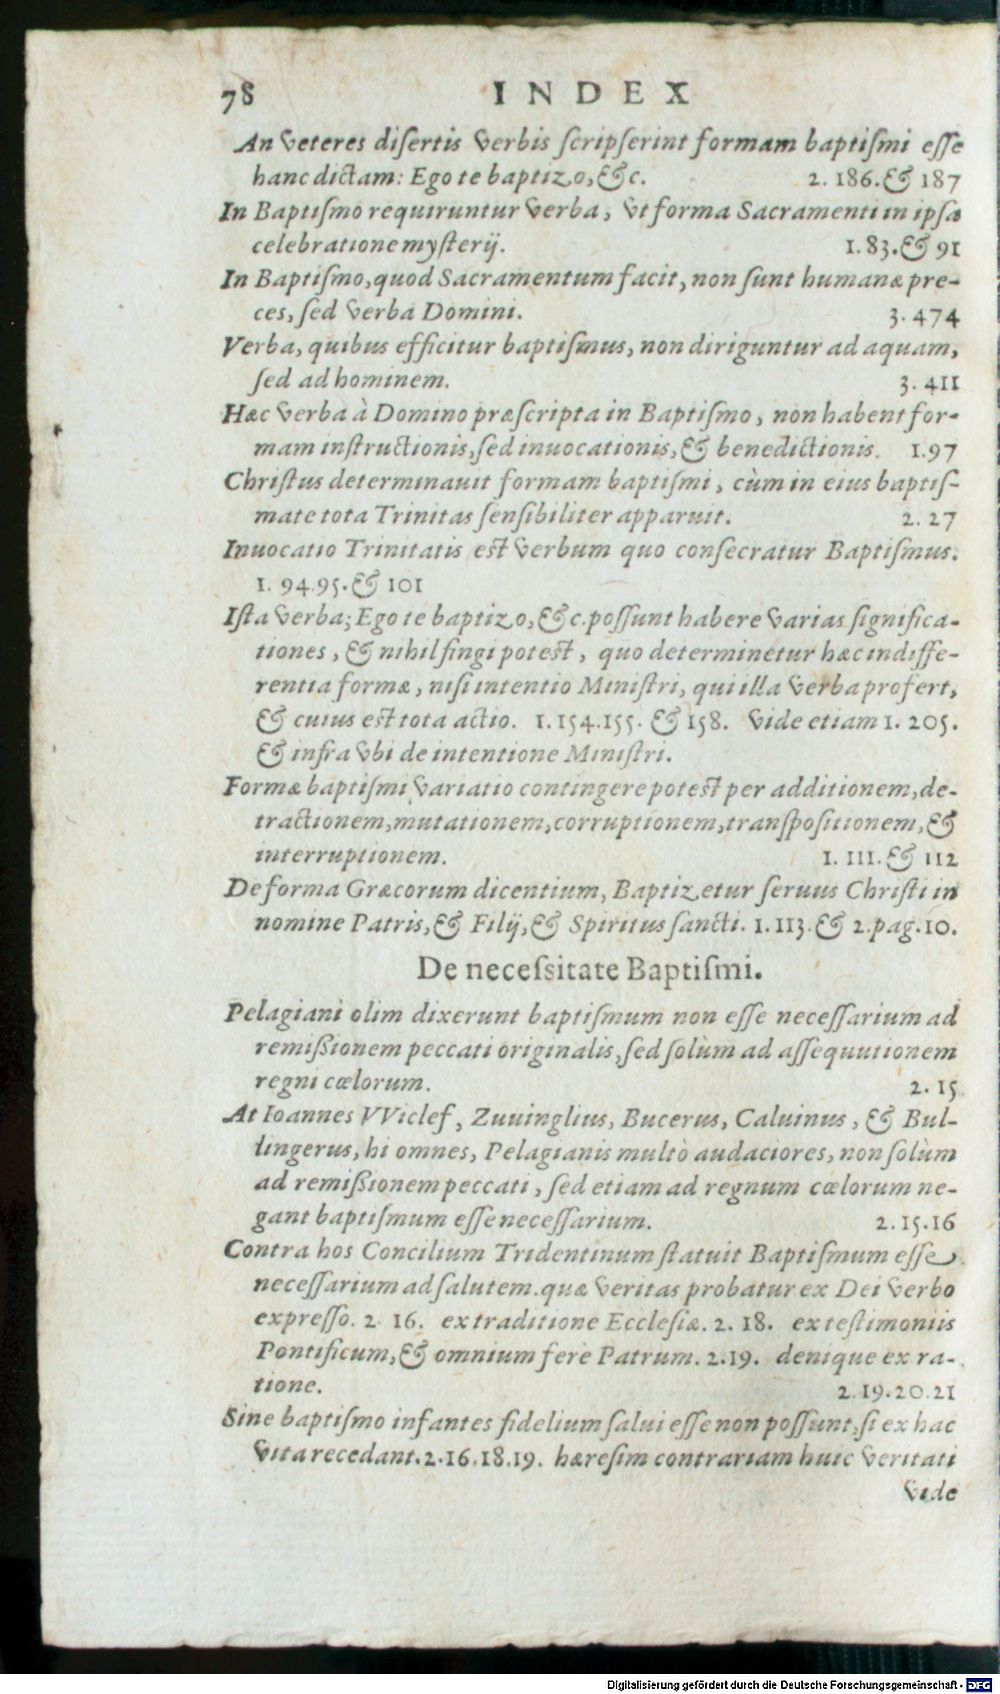 78 INDEX
An veteres disertis verbis scripserint formam baptismi esse
hanc dictam: Ego te baptizo, &c. 2. 186. & 187
In Baptismo requiruntur verba, vt forma Sacramenti in ipsa
celebratione mysterij. 1. 83. & 91
In Baptismo, quod Sacramentum facit, non sunt humanæ pre-
ces, sed verba Domini. 3. 474
Verba, quibus efficitur baptismus, non diriguntur ad aquam,
sed ad hominem. 3. 411
Hæc verba à Domino præscripta in Baptismo, non habent for-
mam instructionis, sed inuocationis, & benedictionis. 1.97
Christus determinauit formam baptismi, cùm in eius baptis-
mate tota Trinitas sensibiliter apparuit. 2. 27
Inuocatio Trinitatis est verbum quo consecratur Baptismus.
1. 94.95. & 101
Ista verba; Ego te baptizo, &c. possunt habere varias significa-
tiones, & nihil fingi potest, quo determinetur hæc indiffe-
rentia formæ, nisi intentio Ministri, qui illa verba profert,
& cuius est tota actio. 1. 154.155. & 158. vide etiam 1. 205.
& infra vbi de intentione Ministri.
Formæ baptismi variatio contingere potest per additionem, de-
tractionem, mutationem, corruptionem, transpositionem, &
interruptionem. 1. 111. & 112
De forma Græcorum dicentium, Baptizetur seruus Christi in
nomine Patris, & Filij, & Spiritus sancti. 1. 113. & 2. pag. 10.
De necessitate Baptismi.
Pelagiani olim dixerunt baptismum non esse necessarium ad
remißionem peccati originalis, sed solùm ad assequutionem
regni cœlorum. 2. 15
At Ioannes VViclef, Zuuinglius, Bucerus, Caluinus, & Bul-
lingerus, hi omnes, Pelagianis multò audaciores, non solùm
ad remißionem peccati, sed etiam ad regnum cœlorum ne-
gant baptismum esse necessarium. 2. 15. 16
Contra hos Concilium Tridentinum statuit Baptismum esse
necessarium ad salutem. quæ veritas probatur ex Dei verbo
expresso. 2 16. ex traditione Ecclesiæ. 2. 18. ex testimoniis
Pontificum, & omnium fere Patrum. 2.19. denique ex ra-
tione. 2. 19. 20. 21
Sine baptismo infantes fidelium salui esse non possunt, si ex hac
vita recedant. 2. 16. 18. 19. hæresim contrariam huic veritati
vide
Digitalisierung gefördert durch die Deutsche Forschungsgemeinschaft - DFG